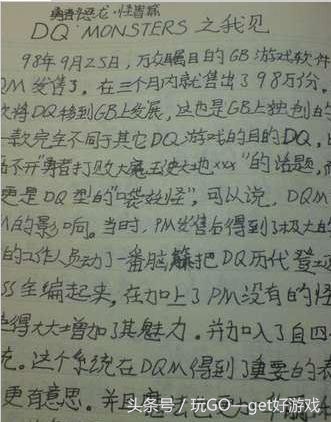 勇者斗恶龙·怪兽篇
DQ·MONSTERS 之我见
98年9月25日，万众瞩目的GB游戏软件
QM发售了。在三个月内就售出了98万份。
次将DQ移到GB上发展，这也是GB上独创的
一款完全不同于其它DQ游戏的目的DQ，
离不开“勇者打败大魔王使大地xxx”的话题，而
更是DQ型的“袋妖怪”，可以说，DQM
M的影响向。当时，PM发售后得到了极大的
的工作人员动了一番脑筋把DQ历代登
SS全编起来，在加上了PM没有的怪
得大大土增加了其魅力。并加入了自四
充。这个系统在DQM得到了重要的表
更有意思。并且
头条号／玩GO一get好游戏